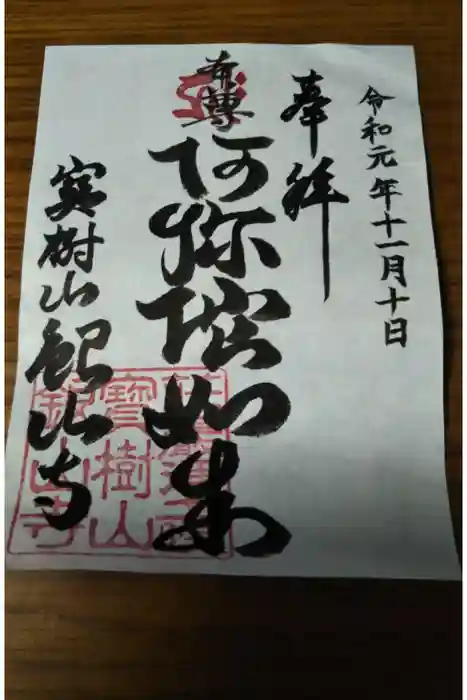 令和元年十一月十日
奉拝
本尊
阿弥陀如来
寳樹山 銀山寺
寶樹山
銀山寺